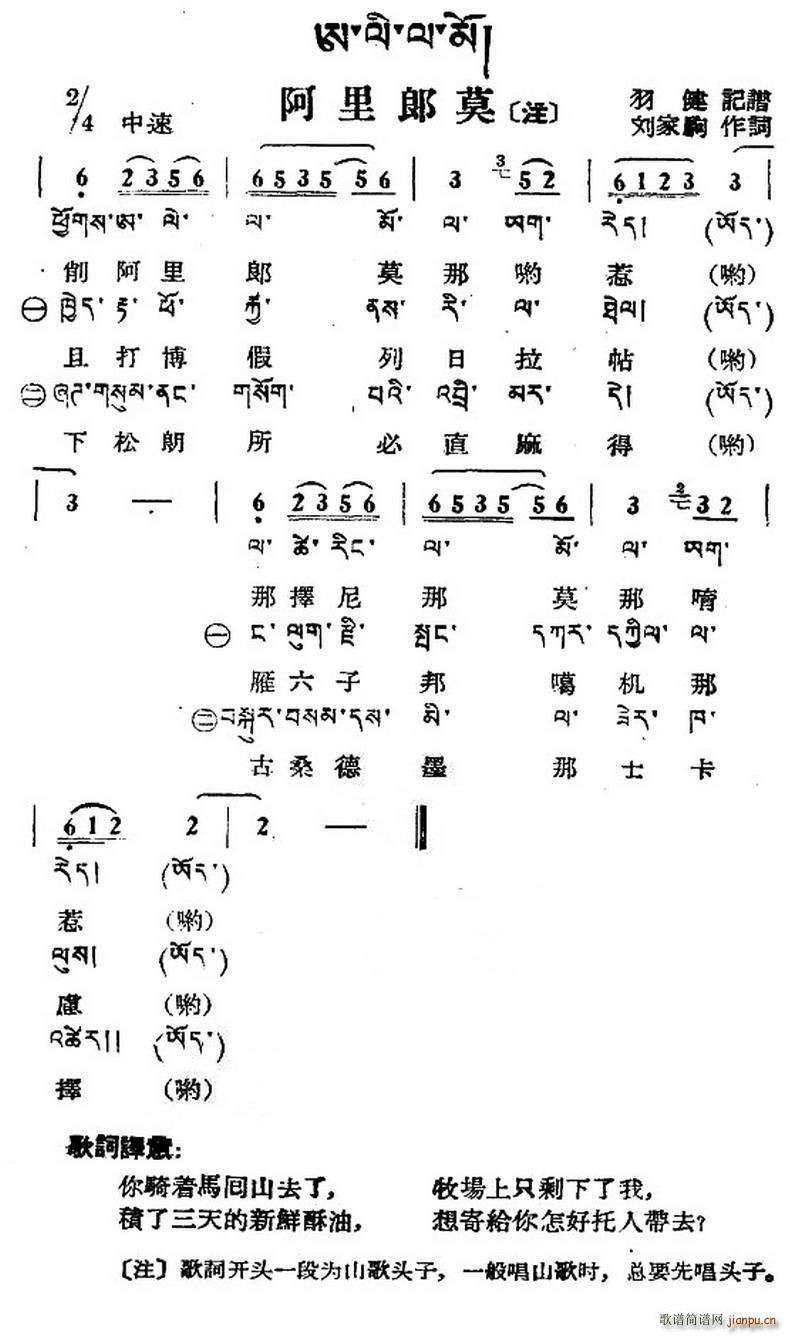 ཨ་ལི་ལ་མོ།
2/4 中速 阿里郎莫〔注〕 羽健記譜
刘家駒作詞
| 6 2356 | 6535 56 | 3 3 52 | 6123 3 |
ཕྱོགས་ཨ་ ལེ་ ལ་ མོ་ ལ་ ཨག་ རེད། (ཨོད་)
削阿里 郎 莫那喲 惹 (喲)
㊀ ཁྱེད་ རྟ་ ཕོ་ རྐྱ་ ནས་ རི་ ལ་ ཐེལ། (ཨོད་)
且打博 假 列日拉 帖 (喲)
㊁ ཞཊ་གསུམ་ནང་ གསོག་ པའི་ འབྲི་ མར་ དེ། (ཨོད་)
下松朗 所 必直麻 得 (喲)
| 3 — | 6 2356 | 6535 56 | 3 2 32 |
ལ་ ཚེ་ རིང་ ལ་ མོ་ ལ་ ཨག་
那擇尼 那 莫那唷
㊀ ང་ ལུག་ རྫི་ སྤང་ དཀར་ དཀྱིལ་ ལ་
雁六子 邦 噶机那
㊁ བསྐུར་བསམ་དས་ མི་ ལ་ ཟེར་ ཁ་
古桑德 墨 那士卡
| 612 2 | 2 — ‖
རེད། (ཨོད་)
惹 (喲)
ལུས། (ཨོད་)
慮 (喲)
འཚེར།། (ཨོད་)
擇 (喲)
歌詞譯意:
你騎着馬囘山去了, 牧場上只剩下了我,
積了三天的新鮮酥油, 想寄給你怎好托人帶去?
〔注〕歌詞开头一段为山歌头子，一般唱山歌时，总要先唱头子。
歌谱简谱网 jianpu.cn